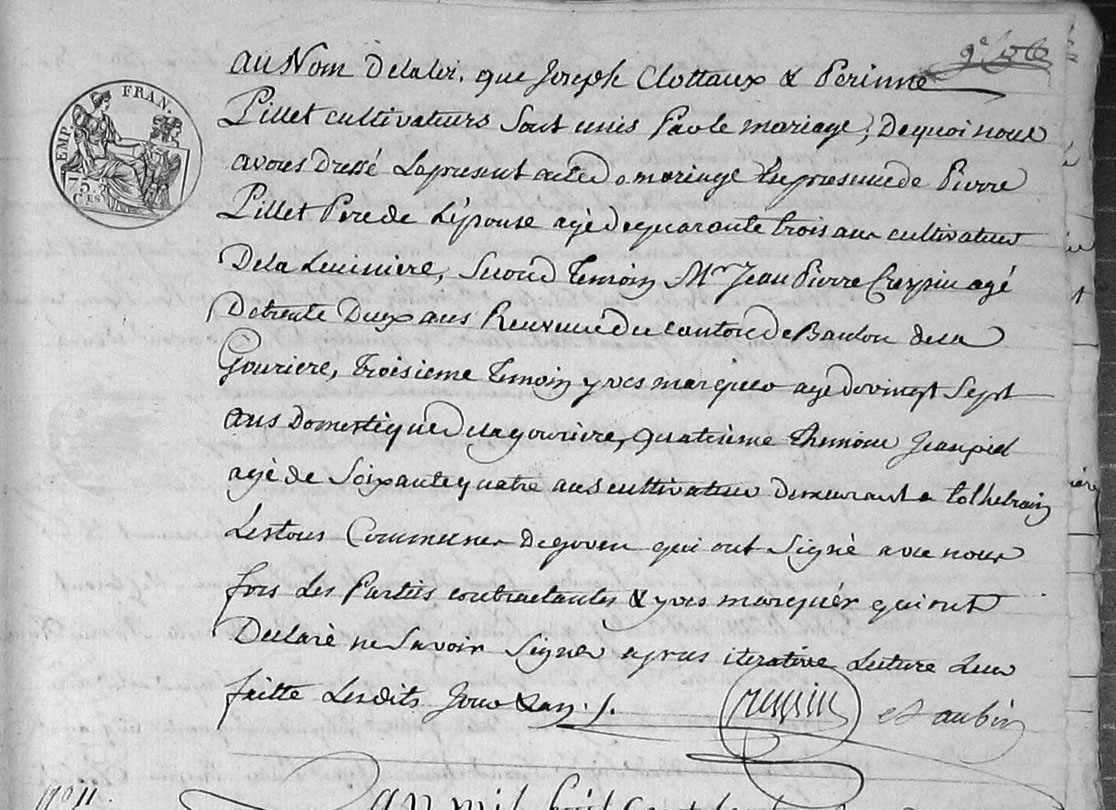 au Nom delaloi, que Joseph Clottaux & Perinne
Pillet cultivateurs Sont unis Parle mariage; Dequoi nous
avons Dressé Lapresent acte de mariage En presence de Pierre
Pillet Pere de L'épouse agé dequarante trois ans cultivateur
Dela Leviniere, Second Temoin Mr Jean Pierre Crespin agé
De trente Deux ans du canton de Baulon dela
Gouriere, troisieme Temoin yves marquer agé de vingt Sept
ans Domestique De lagouriere, quatrieme themoin Jean piel
agé de Soixante quatre ans cultivateur demeurant a
Les tous Commune De goven qui ont Signé avec nous
fors Les Parties contractantes & yves marquer qui ont
Declaré ne Savoir Signer apres iterative Lecture Leur
faitte Lesdits Jour & an ./.
EMP. FRAN.
75
CES
crespin
et aubin
n° 11.
an mil huit Cent